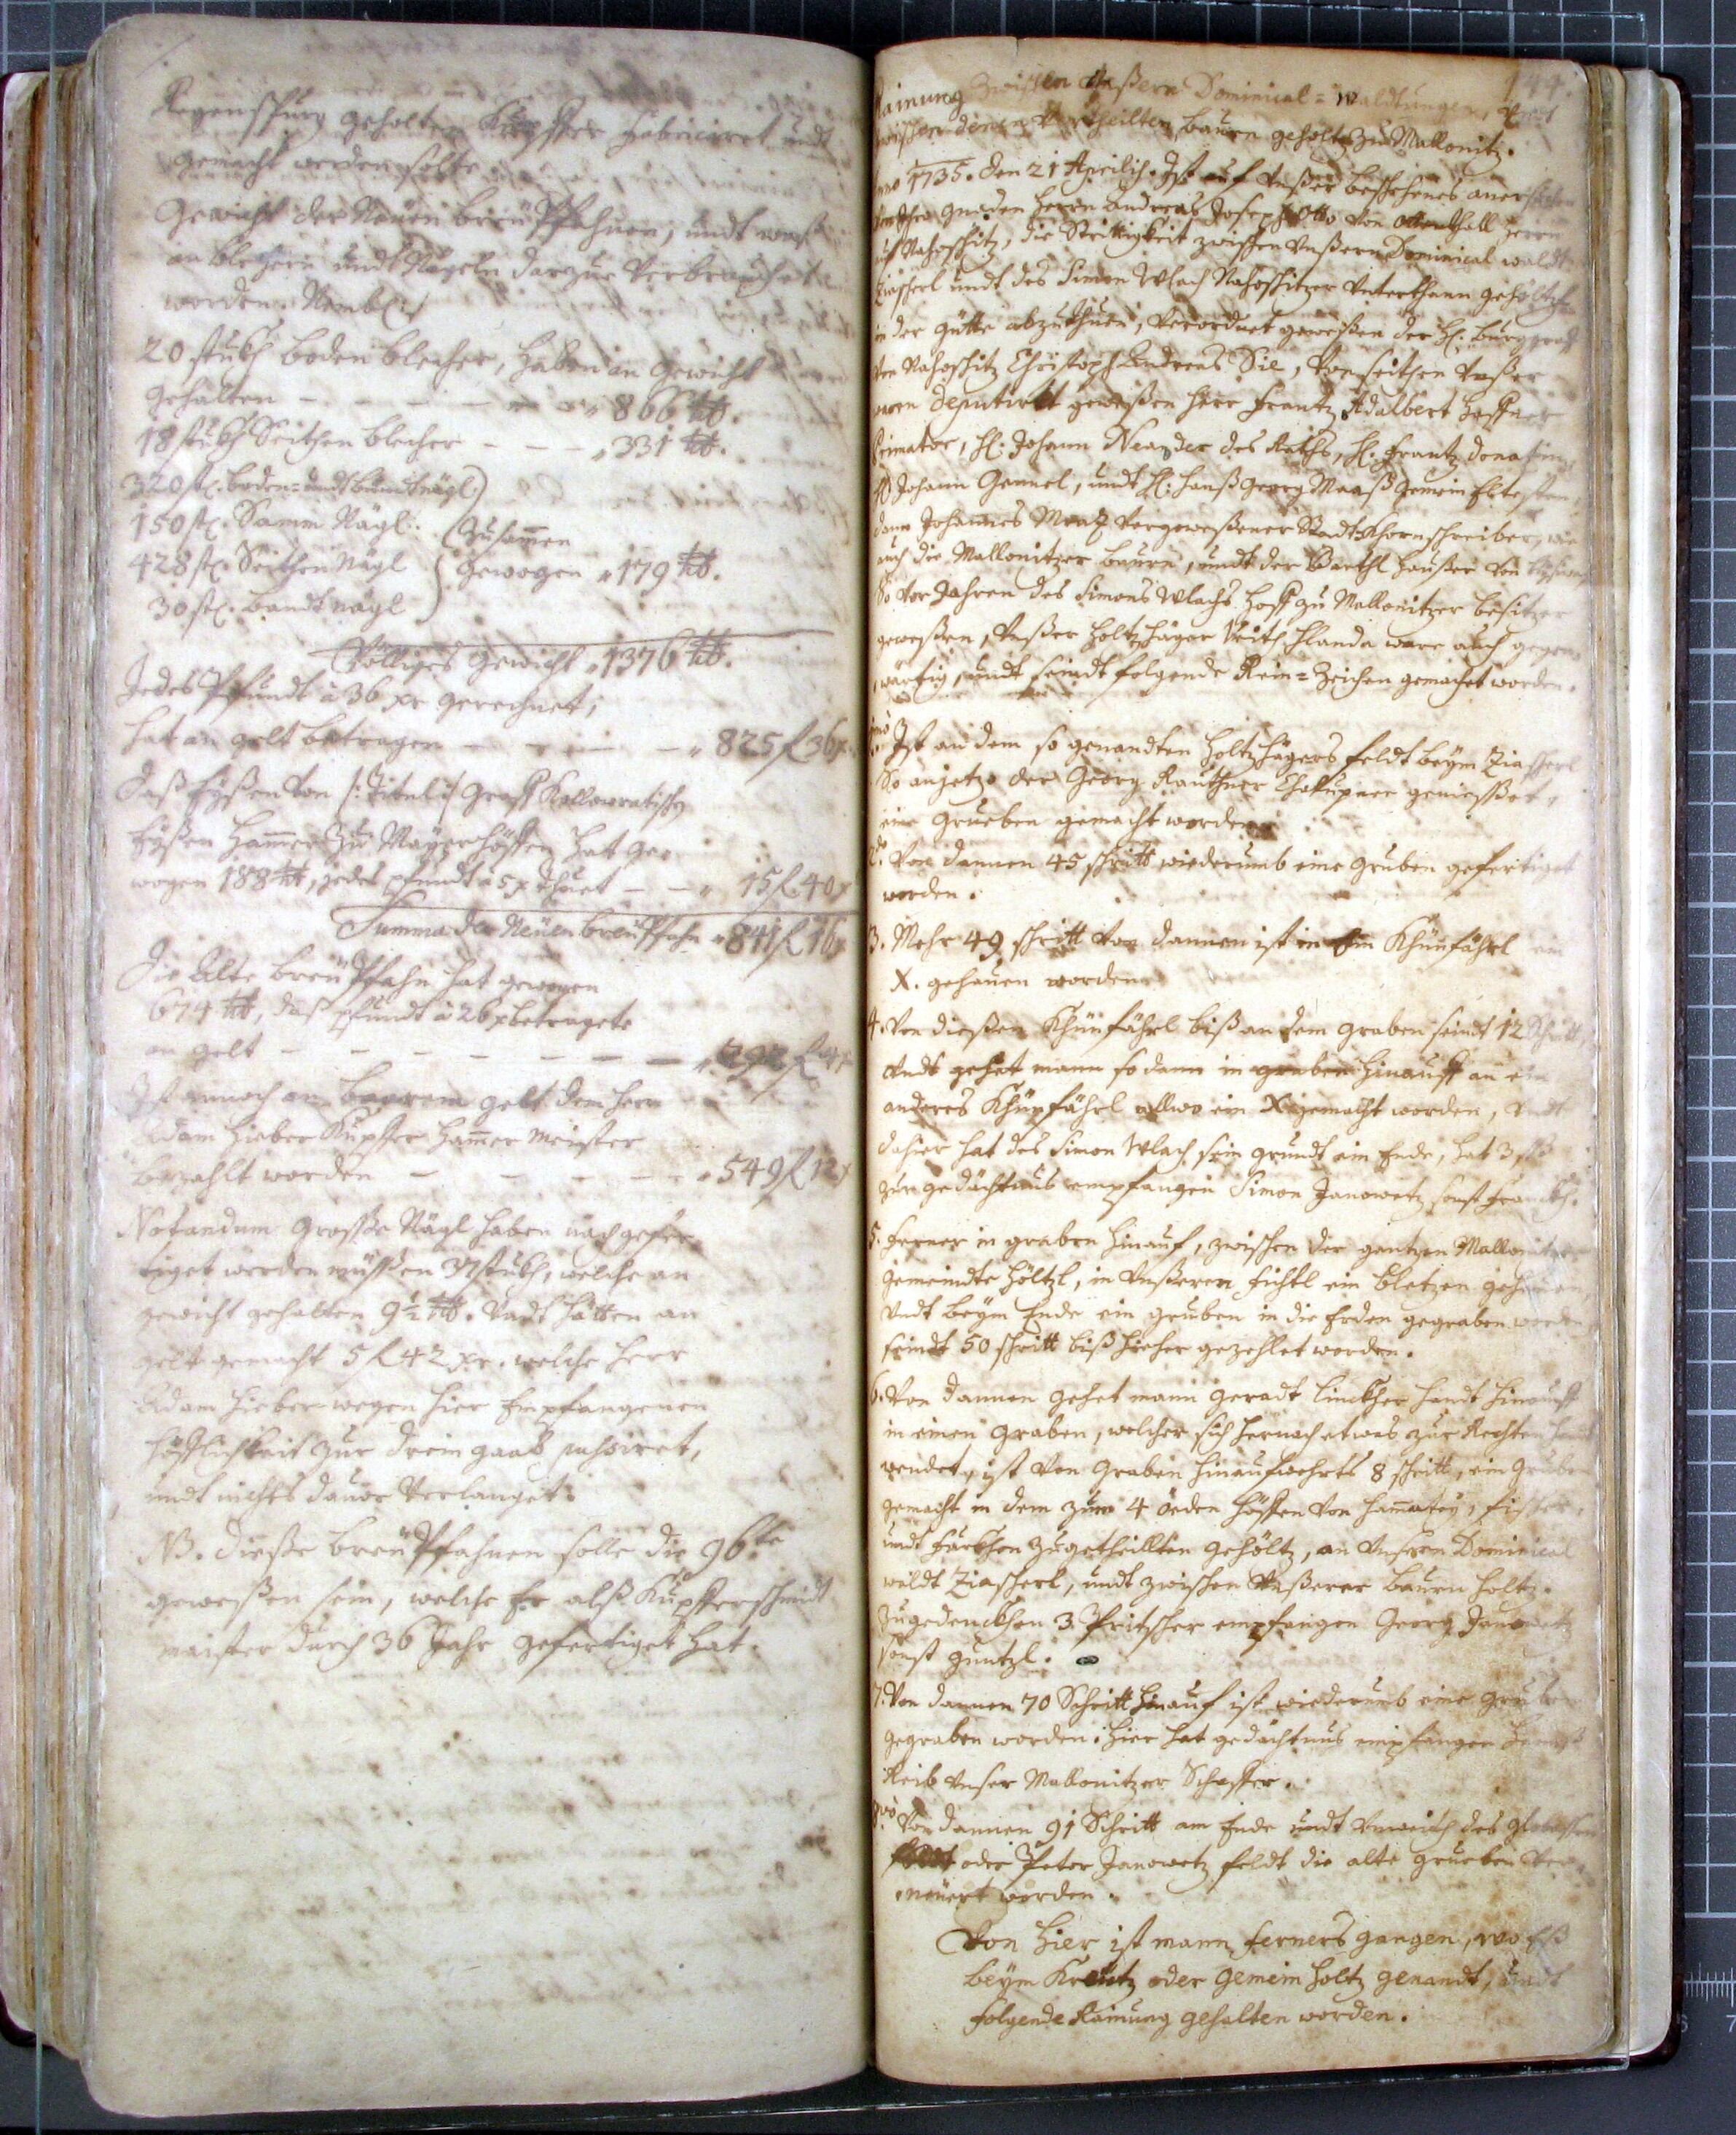 Regenspurg geholten Kupffer fabriciret undt
gemacht werden solte
Gewicht der Neüen breü Pfahnen, undt waß
an blechern undt Nägeln darzue verbrauchet
worden. Nembl:
20 stukh boden blecher, haben in Gewicht
gehalten - - - - 866 ℔.
18 stukh Seithen blecher - - - 331 ℔.
320 st. boden- undt bundtnägl
150 st. Samm Nägl. Zusammen
428 st. Seithen Nägl gewogen 179 ℔.
30 st. bandt nägl
Völliges Gewicht 1376 ℔.
Jedes Pfundt à 36 xr gerechnet,
hat an gelt betragen - - - 825 f 36 x
Daß Eyßen von /: Titul :/ Graff Kollowratischen
Eyßen Hammer zu Mayerhöffen hat ge-
wogen 188 ℔, jedes pfundt à 5 x thuet - - 15 f. 40 x
Summa der Neüen breü Pfahn 841 f 16 x
Die Alte breü Pfahn hat gewogen
674 ℔, daß pfundt à 26 x betragete
an gelt - - - - - - 292 f 4 x
Ist annoch an baarem gelt dem herrn
Adam Hieber Kupffer Hammer Meister
bezahlt worden - - - - 549 f 12 x
Notandum Grosse Nägl haben nachgefer-
tiget werden müssen 37 stukh, welche an
gewicht gehalten 9 1/2 ℔. Undt hätten an
gelt gemacht 5 f 42 xr. welche herr
Adam Hieber wegen hier Empfangenen
höfflichkeit zur drein gaab
undt nichts davor verlanget.
NB. diese breü Pfahnen solle die 96te
gewesen sein, welche Er alß Kupfferschmidt
maister durch 36 Jahr gefertiget hat.
144.
Rainung zwischen Unßern Dominical-Waldtungen, Undt
zwischen denen vertheilten bauern geholtz zu Mallonitz.
Anno 1735. den 21 Aprilis. Ist auf Unßer beschehenes anersuchen
Ihro Gnaden Herrn Andreas Joseph Otto von Ottenthall herrn
auf Nahoschitz, die Strittigkeit zwischen Unßern Dominical waldt
Ziascherl undt des Simon Wlach Nahoschitzer Unterthann geholtz
in der Gütte abzuthuen, verordnet geweßen der H. burggraff
von Nahoschitz Christoph Andreas Sie, Von seithen Unßer
waren deputirt geweßen herr Frantz Adalbert Haffner
Primator, H: Johann Neander des Raths, H. Frantz Donatin,
H Johann Gemel, undt H: Hanß Georg Maaß Gemein Eltesten,
dann Johannes Maaß vorgeweßener Stadt Khornschreiber, wie
auch die Mallonitzer bauern, undt der Barthl Haußer von
So vor Jahren des Simons Wlachs Hoff zu Mallonitzer besitzer
geweßen, Unßer Holtzhäger Veith Hlanda ware auch gegen-
wärtig, undt seindt folgende Rein-Zeichen gemachet worden.
1mo Ist an dem so genandten Holtzhägers feldt beym Ziascherl
So anjetzo der Georg Rauthner Chalupner geniesset,
eine Grueben gemacht worden.
2do Von dannen 45 schritt wiederumb eine Gruben gefertiget
worden.
3. Mehr 49 schritt von dannen ist in Ein Khünfährl ein
X. gehauen worden
4. Von dießen Khünfährl biß an dem Graben seindt 12 Schritt,
Undt gehet mann sodann in graben hinauff an ein
anderes Khünfährl allwo ein X gemacht worden, Undt
dahier hat des Simon Wlach sein grundt ein Ende, hat 3
zur gedächtnus empfangen Simon Janowetz sonst
5. Ferner in graben hinauf, zwischen der gantzen Mallonitzer
gemeindte höltzl, in Unßeren fichtl ein bletzen gehauen,
Undt beym Ende ein gruben in die Erden gegraben worden
seindt 50 schritt biß hieher gezehlet worden.
6. Von dannen gehet mann geradt linckher handt hinauff
in einen Graben, welcher sich hernach etwas zur Rechten handt
wendet, ist von Graben hinaufwehrts 8 schritt, ein Gruben
gemacht in dem zum 4 öeden höffen von
undt zugetheillten gehöltz, an Unsern Dominical
waldt Ziascherl, undt zwischen Unßerer bauern holtz.
zugedenckhen 3 Pritscher empfangen Georg Janowetz
sonst guntzl.
7. Von dannen 70 Schritt hinauf ist wiederumb eine Gruben
gegraben worden: hier hat gedächtnus empfangen
Reib Unser Mallonitzer Schaffer.
8vo Von dannen 91 Schritt am Ende undt Unweith des
oder Peter Janowetz feldt die alte grueben ver-
neüert worden.
Von hier ist mann ferners gangen, wo Eß
beym Kreutz oder Gemein holtz genandt, undt
folgende Rainung gehalten worden.